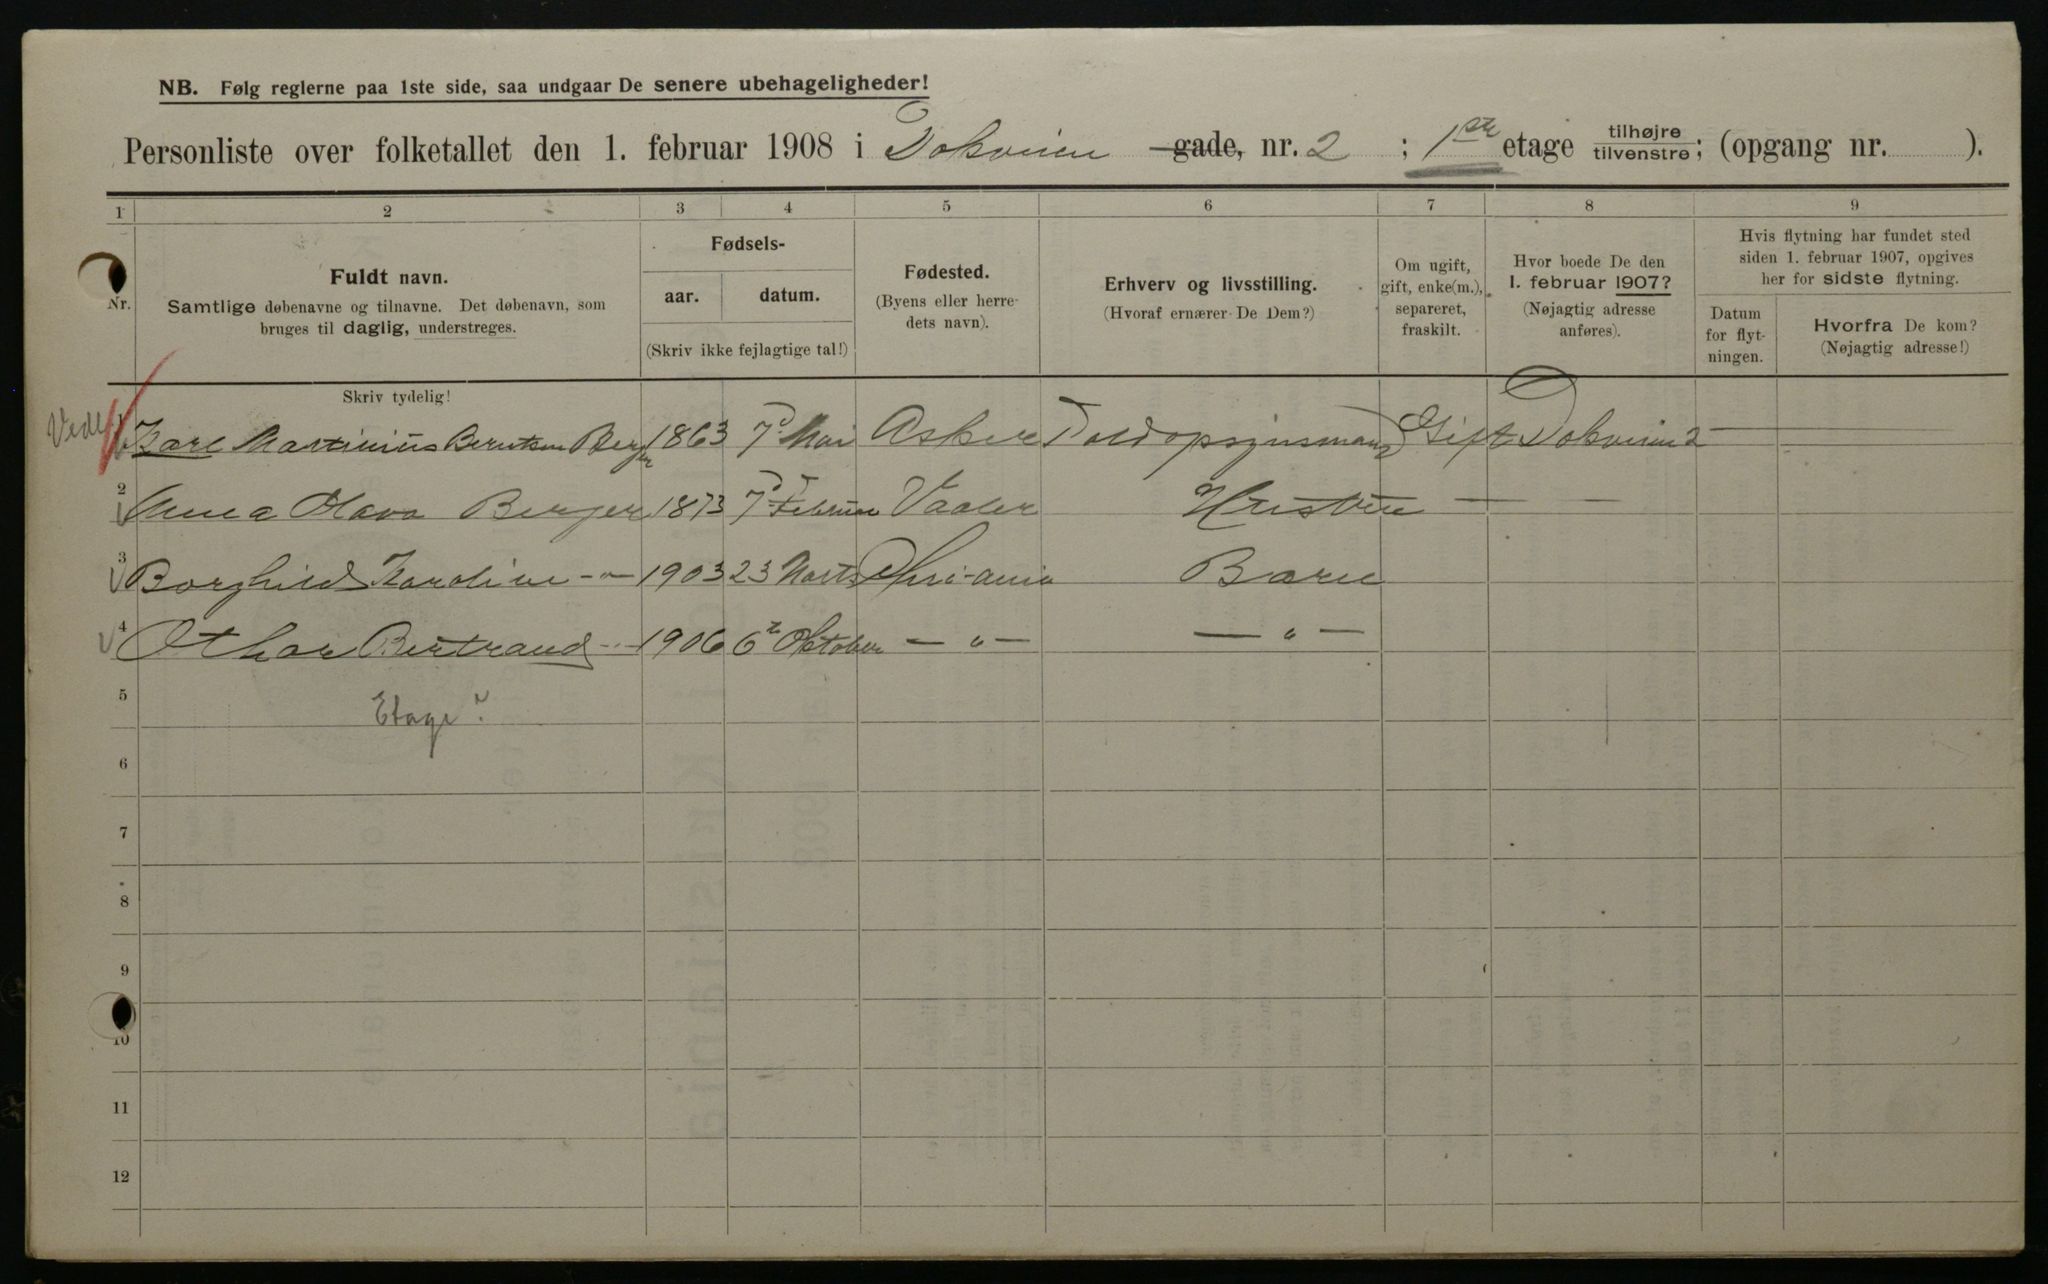 NB. Følg reglerne paa 1ste side, saa undgaar De senere ubehageligheder!
Personliste over folketallet den 1. februar 1908 i Dokveien gade, nr. 2 ; 1ste etage tilhøjre tilvenstre; (opgang nr. ).
1 2 3 4 5 6 7 8 9
Nr.
Fuldt navn.
Samtlige døbenavne og tilnavne. Det døbenavn, som
bruges til daglig, understreges.
Fødsels-
aar. datum.
(Skriv ikke fejlagtige tal!)
Fødested.
(Byens eller herre-
dets navn).
Erhverv og livsstilling.
(Hvoraf ernærer De Dem?)
Om ugift,
gift, enke(m.),
separeret,
fraskilt.
Hvor boede De den
1. februar 1907?
(Nøjagtig adresse
anføres).
Hvis flytning har fundet sted
siden 1. februar 1907, opgives
her for sidste flytning.
Datum
for flyt-
ningen.
Hvorfra De kom?
(Nøjagtig adresse!)
Skriv tydelig!
1 Karl Martinius Berntsen Berger 1863 7d Mai Asker Toldopsynsmand Gift Dokveien 2 —
2 Anna Olava Berger 1873 7d Februar Vaaler Hustru — —
3 Borghild Karoline -"- 1903 23 Marts Chri-ania Barn
4 Othar Bertrand -"- 1906 6te Oktober — " — — " —
5
Etage?
6
7
8
9
10
11
12